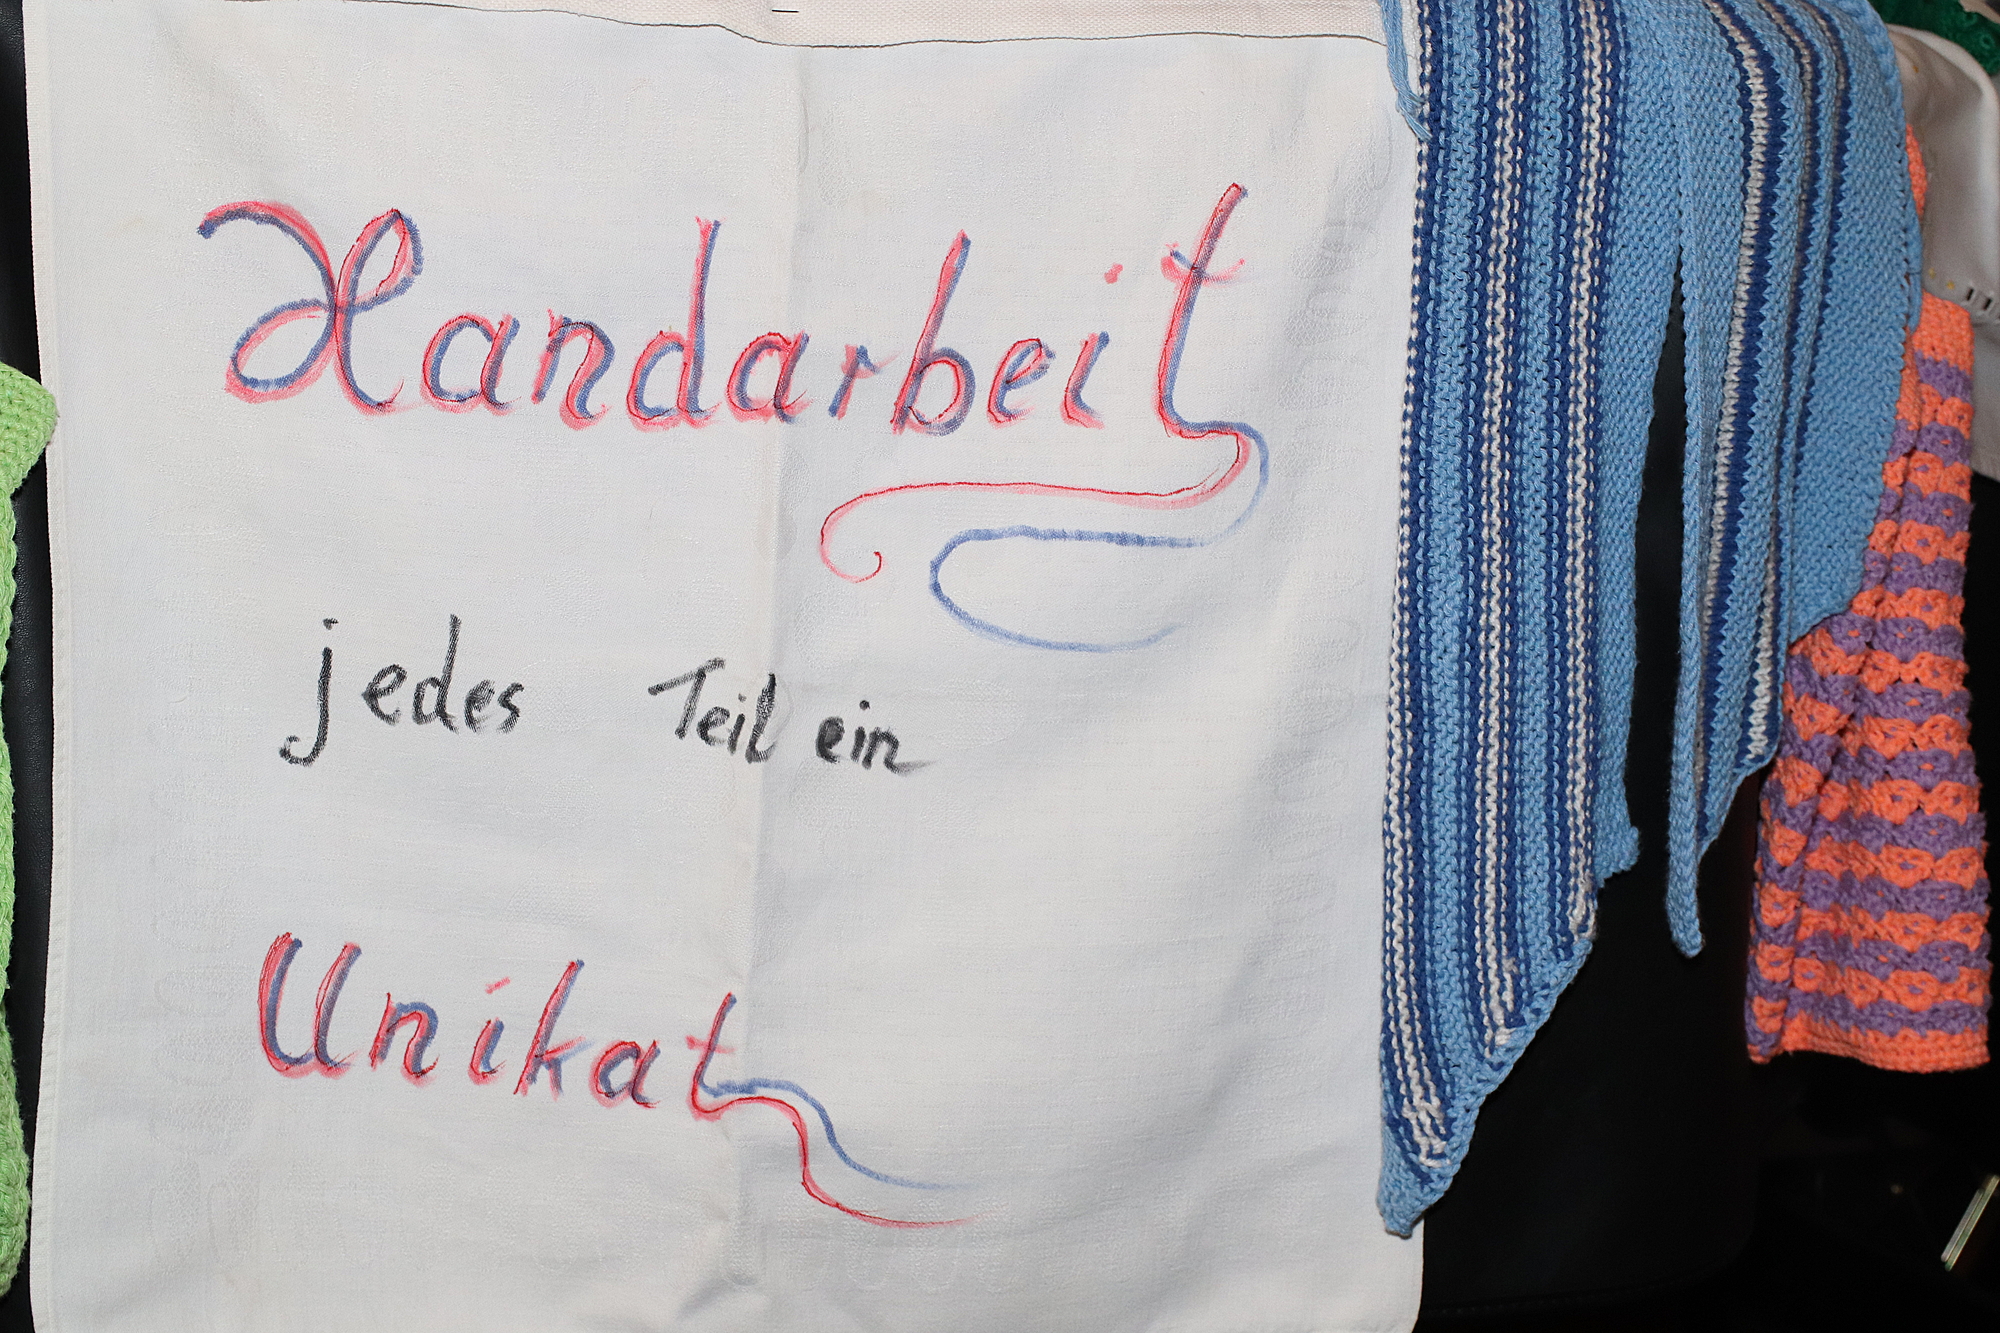 Handarbeit
jedes Teil ein
Unikat